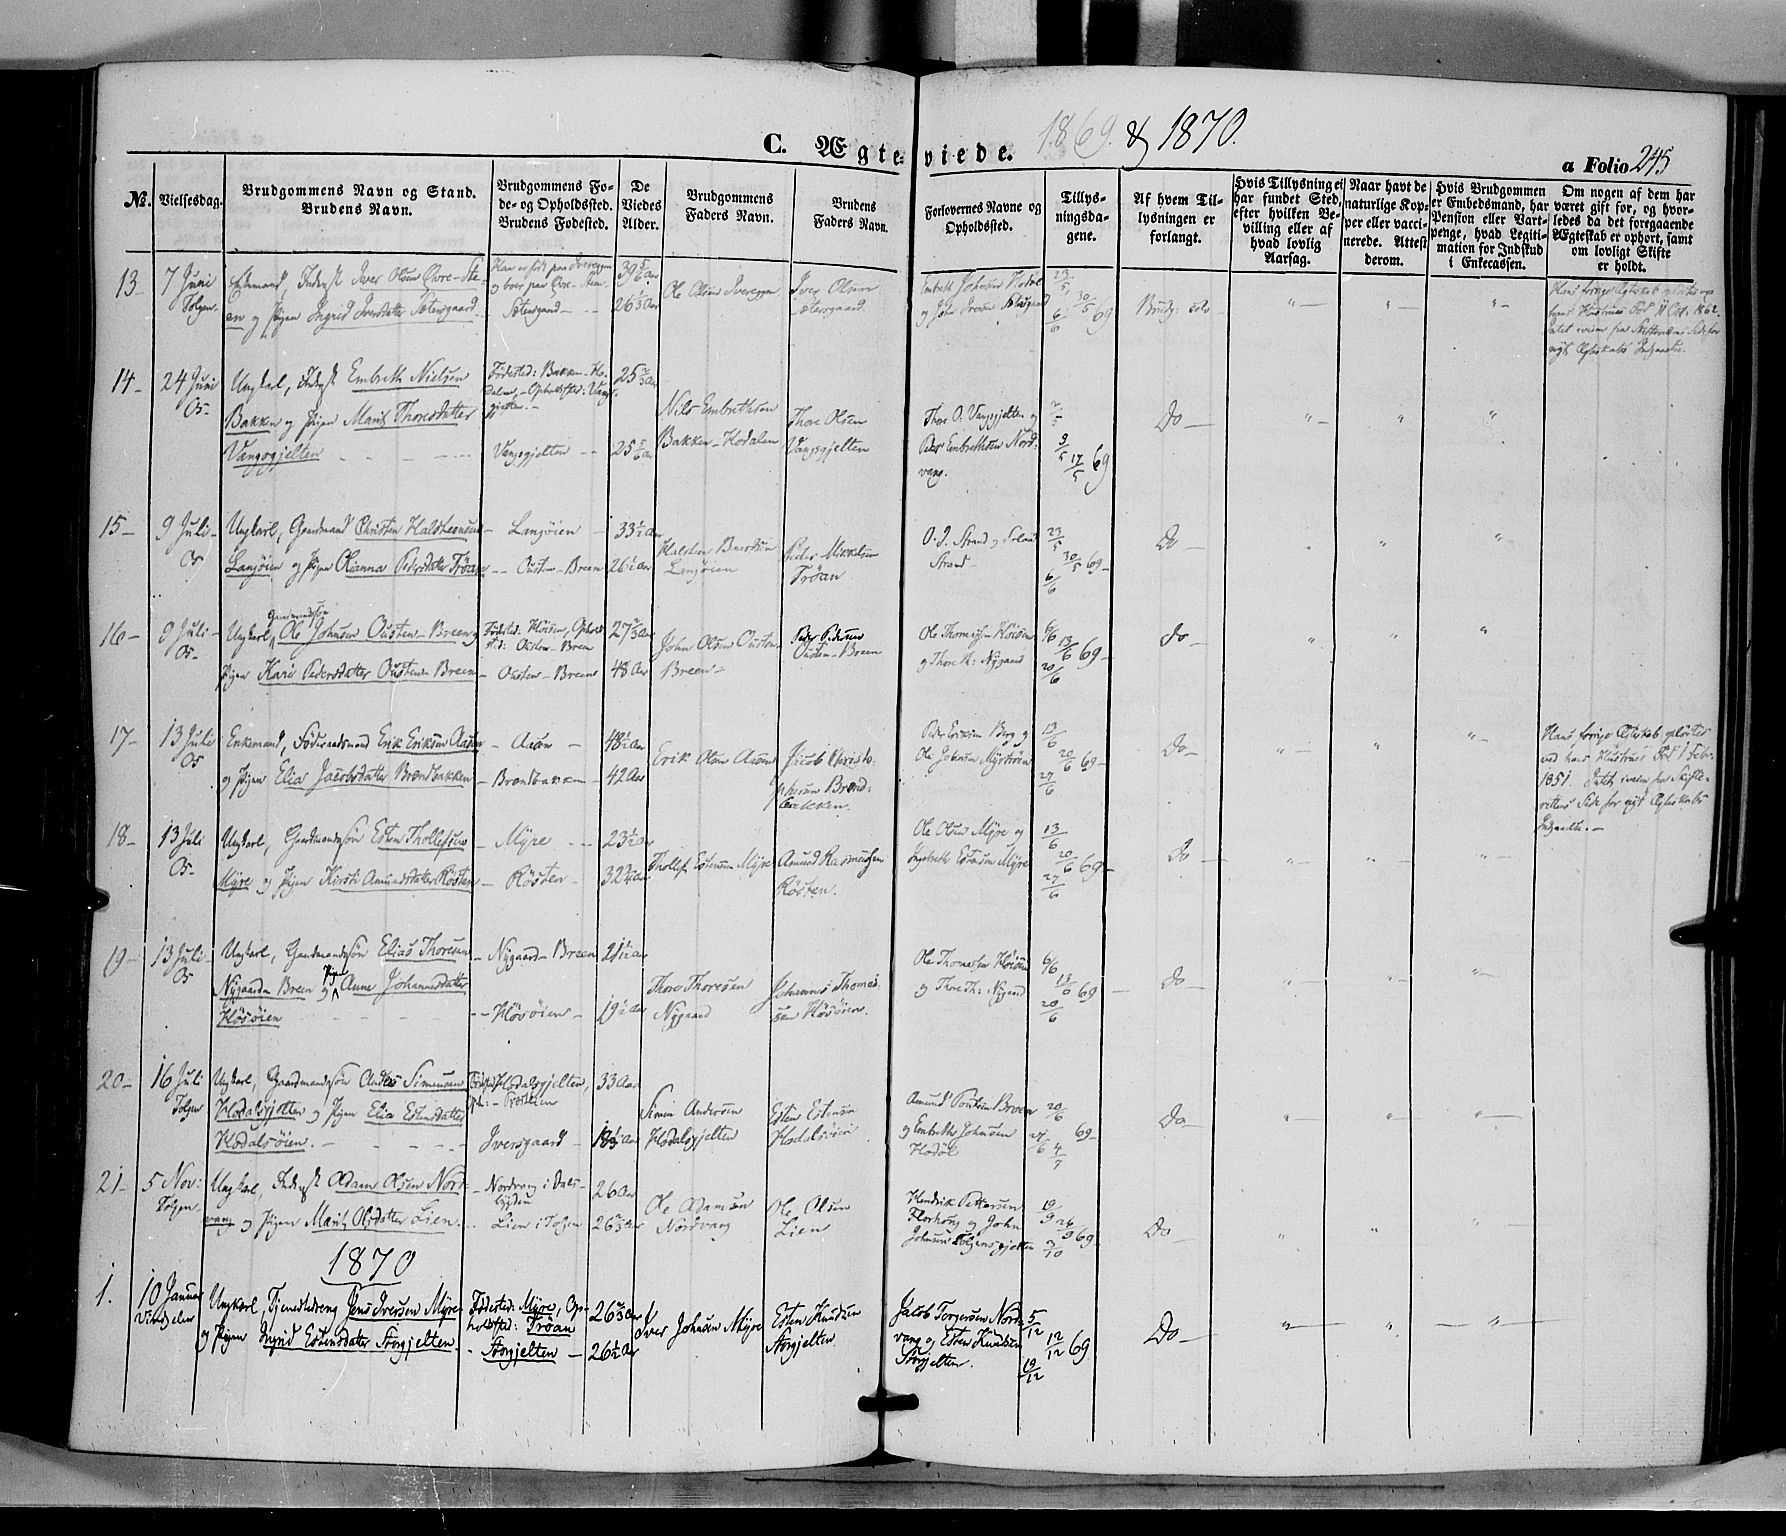 C. Ægteviede. 1869. & 1870.
a Folio 245
No. Vielsesdag. Brudgommens Navn og Stand. Brudens Navn.
Brudgommens Føde- og Opholdssted. Brudens Fødested.
De Viedes Alder.
Brudgommens Faders Navn.
Brudens Faders Navn.
Forlovernes Navne og Opholdssted.
Tillysningsdagene.
Af hvem Tillysningen er forlangt.
Hvis Tillysning ei har fundet Sted, efter hvilken Bevilling eller af hvad lovlig Aarsag.
Naar havt de naturlige Kopper eller vaccinerede. Attest derom.
Hvis Brudgommen er Embedsmand, har Pension eller Vartpenge, hvad Legitimation for Indskud i Enkecassen.
Om nogen af dem har været gift før, og hvorledes da det foregaaende Ægteskab er ophørt, samt om lovligt Skifte er holdt.
13- 7 Juni Tolgen
Enkemand, Inderst Iver Olsen Øvre-Steen og Pigen Ingrid Iversdatter Sætersgaard
Sætersgaard
39 5/6 Aar
26 1/3 Aar
Ole Olsen
Iver Olsen Sætersgaard
23/5 30/5 6/6 69
Brudg: selv
Hans forrige Ægteskab
hans Hustrues Død 11 Oct. 1862.
14- 24 Juni Os-
Ungkarl, Inderst Embreth Nielsen
Bakken og Pigen Marit Thoresdatter
Vangsgjelten
Fødested: Bakken-Hodalen,- Opholdssted: Vangsgjelten.-
Vangsgjelten
25 2/3 Aar
25 5/6 Aar
Nils Embrethsen
Bakken-Hodalen
Thore Olsen
Vangsgjelten
Thore O. Vangsgjelten og
Peder Embrethsen Nordvang.
2/5 9/5 17/5 69
Do-
15- 9 Juli- Os
Ungkarl, Gaardmand Christen Halstensen
Langøien og Pigen Olianna Pedersdatter Trøan
Langøien
Ousten-Breen
33 1/2 Aar
26 1/2 Aar
Halsten Langøien
Peder Mikkelsen
Trøan
O. J. Strand og
Strand-
23/5 30/5 6/6 69-
Do-
16- 9 Juli- Os-
Ungkarl, Gaardmandssøn Ole Johnsen Ousten-Breen og
Pigen Kari Pedersdatter Ousten-Breen
Fødested: Høisen, Opholdsted: Ousten-Breen
Ousten-Breen
27 2/3 Aar
48 Aar
John Olsen Ousten
Breen-
Peder Pedersen
Ousten-Breen
Ole Thomæsen Høisen
og Thore Th: Nygaard
6/6 13/6 20/6 69-
Do-
17- 13 Juli Os
Enkemand, Føderaadsmand Erik Eriksen Aasen
og Pigen Elia Jacobsdatter Brendbakken
Aasen
Brendbakken
48 1/2 Aar
42 Aar
Erik Olsen Aasen
Jacob Christophersen Brendbakken.
Peder Eriksen Berg og
Ole Johnsen Myrtrøen
13/6 20/6 27/6 69-
Do-
Hans forrige Ægteskab opløstes
ved hans Hustrues Død 1 Febr.
1851.
18- 13 Juli Os-
Ungkarl, Gaardmandssøn Esten Thollefsen
Myre og Pigen Kirsti Amundsdatter Røsten
Myre
Røsten
23 1/2 Aar
32 3/4 Aar
Thollef Estensen Myre
Amund Rasmussen
Røsten.
Ole Olsen Myre og
Ingebreth Estensen Myre
13/6 20/6 27/6 69-
Do-
19- 13 Juli- Os
Ungkarl, Gaardmandssøn Elias Thoresen
Nygaarden Breen og Pigen Anne Johannesdatter
Høsøien
Nygaard-Breen
Høsøien
21 1/2 Aar
19 1/2 Aar
Thore Thoresen
Nygaard
Johannes Thomesen Høsøien.
Ole Thomæsen Høisen
og Thore Th: Nygaard
6/6 13/6 20/6 69
Do-
20- 16 Juli Tolgen
Ungkarl, Gaardmandssøn Anders Simensen
Hodalsgjelten og Pigen Elia Estensdatter
Hodalsøien.
Fødested Hodalsgjelten,
Iversgaard
33 Aar
18 1/2 Aar
Simen Andersen
Hodalsgjelten
Esten Estensen
Hodalsøien
Amund Poulsen Breen
og Embreth Johnsen
Hodøl
20/6 27/6 4/7 69-
Do-
21- 5 Nov: Tolgen
Ungkarl, Inderst Adam Olsen Nordvang og Pigen Marit Olsdatter Lien.
Nordvang i Dalsbygden
Lien i Tolgen
26 Aar
26 2/3 Aar
Ole Adamsen
Nordvang
Ole Olsen
Lien
Hendrik Pettersen
Florhong og John
Johnsen Tolgensgjelten
19/9 26/9 3/10 69-
Do-
1870
1. 10 Januar Vingelen
Ungkarl, Tjenestedreng Jens Iversen Myre
og Pigen Ingrid Estensdatter Storgjelten.
Fødested: Myre, Opholdssted: Trøan
- Storgjelten -
26 2/3 Aar
26 1/2 Aar
Iver Johnsen Myre
Esten Knudsen
Storgjelten
Jacob Torgersen Nordvang og Esten Knudsen
Storgjelten.
5/12 12/12 19/12 69
Do-